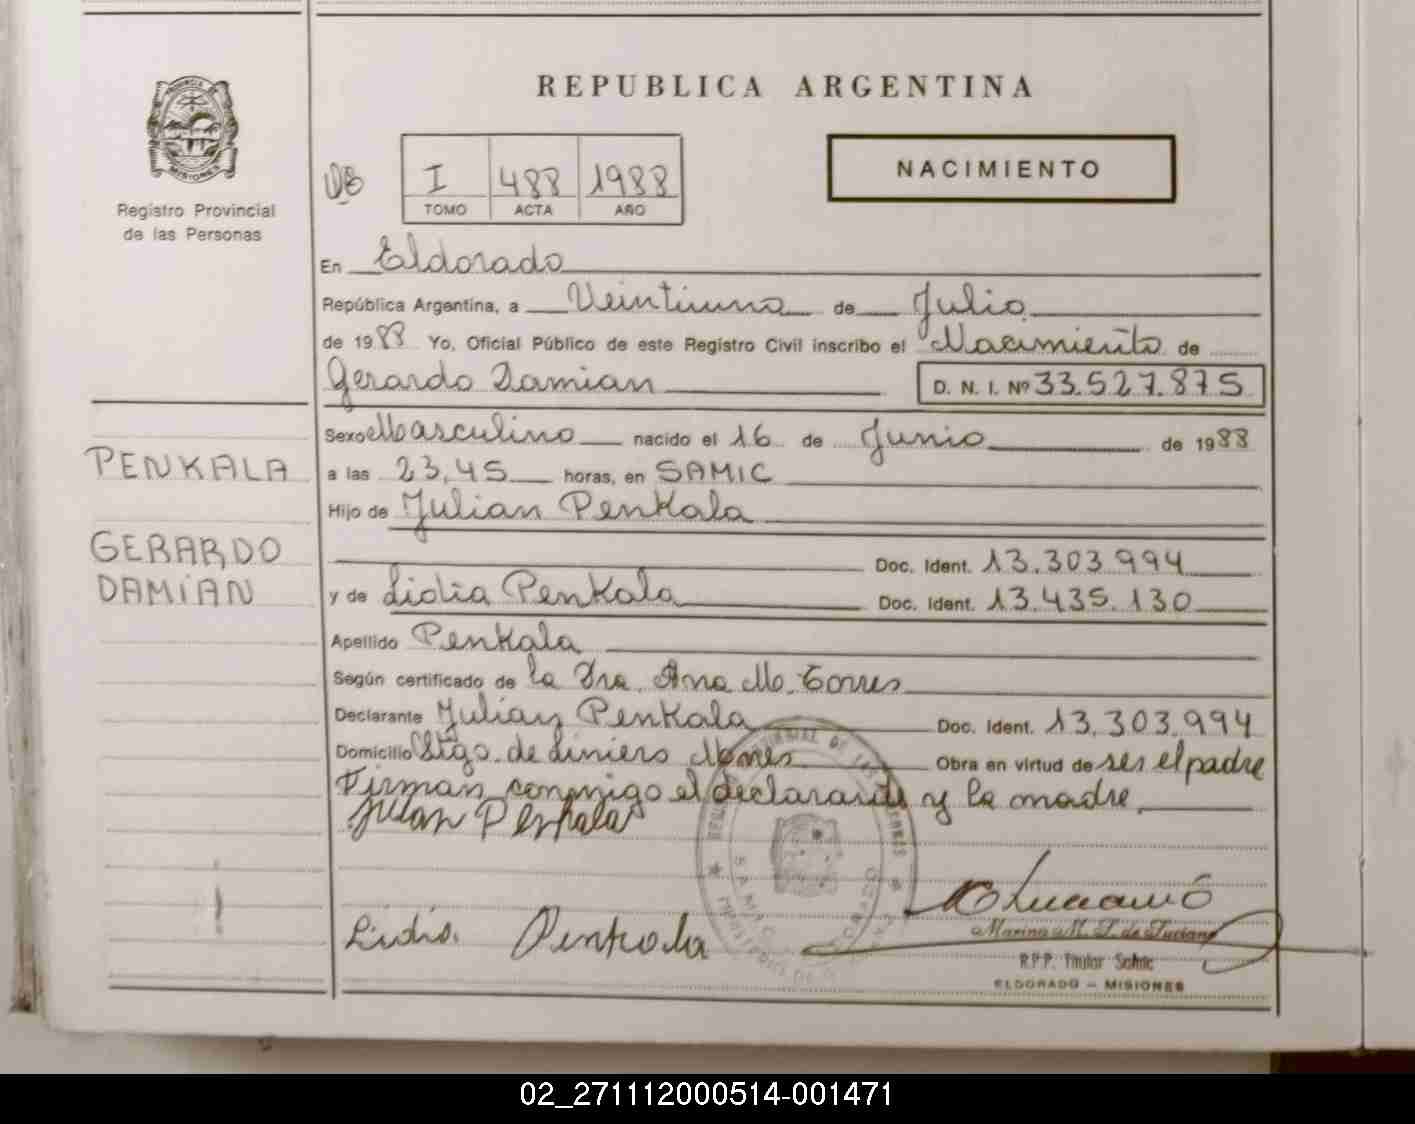 REPUBLICA ARGENTINA
PROVINCIA DE
MISIONES
Registro Provincial
de las Personas
I 488 1988
TOMO ACTA AÑO
NACIMIENTO
En Eldorado
República Argentina, a Veintiuno de Julio
de 1988 Yo, Oficial Público de este Registro Civil inscribo el Nacimiento de
Gerardo Damian D. N. I. Nº 33.527.875
Sexo Masculino nacido el 16 de Junio de 1988
a las 23,45 horas, en SAMIC
Hijo de Julian Penkala
Doc. Ident. 13.303.994
y de Lidia Penkala Doc. Ident. 13.435.130
Apellido Penkala
Según certificado de la Dra. Ana M. Torres
Declarante Julian Penkala Doc. Ident. 13.303.994
Domicilio Stgo. de Liniers Mnes Obra en virtud de ser el padre
Firman conmigo el declarante y la madre
PENKALA
GERARDO
DAMIAN
Julian Penkala
Lidia Penkala
R.P.P. Titular Samic
ELDORADO - MISIONES
02_271112000514-001471